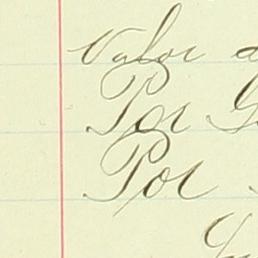 Valor d
Por G
Por